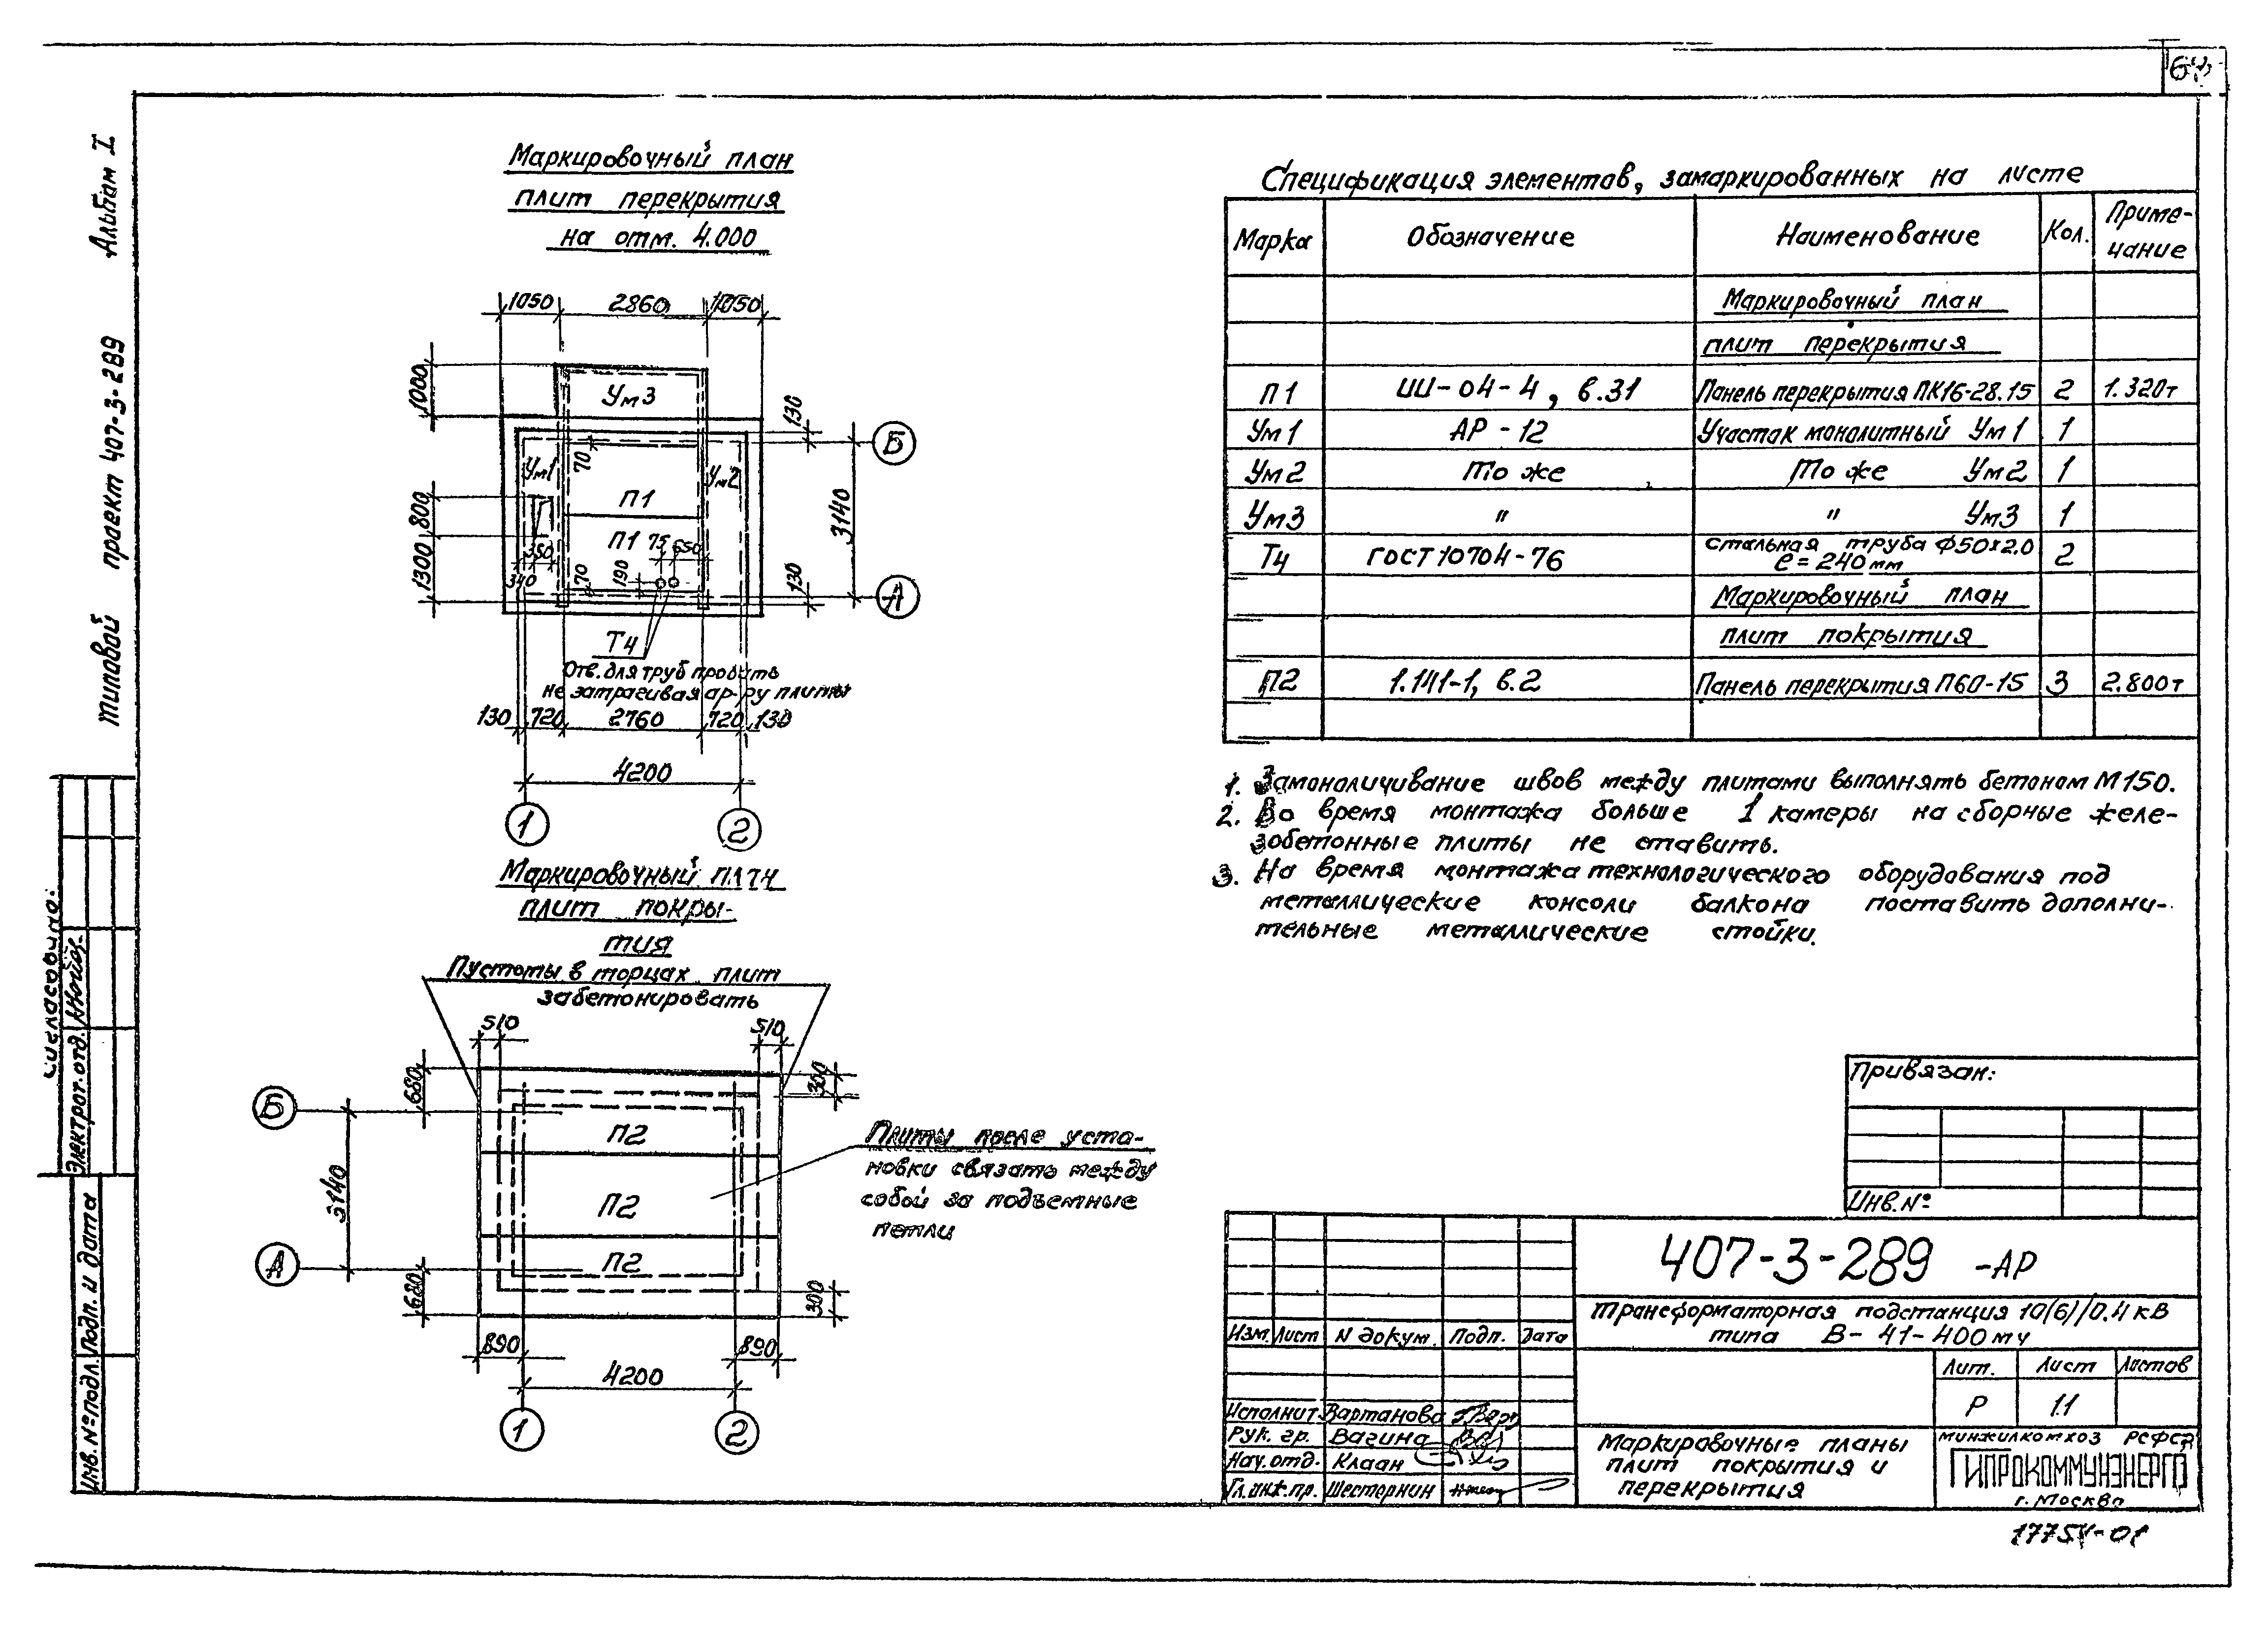 Альбом I
типовой проект 407-3-289
Маркировочный план
плит перекрытия
на отм. 4.000
1050 2860 1050
1000
Ум3
130
Б
Ум1
70
Ум2
П1
800
3140
П1
75 650
350
1300
340
70
190
130
А
Т4
Отв. для труб пробить
не затрагивая ар-ру плиты
130 720 2760 720 130
4200
1 2
Маркировочный план
плит покры-
тия
Пустоты в торцах плит
забетонировать
510 510
680
300
Б
П2
Плиты после уста-
новки связать между
собой за подъемные
петли
3140
П2
А
П2
680
300
890 890
4200
1 2
Спецификация элементов, замаркированных на листе
Марка Обозначение Наименование Кол. Приме-
чание
Маркировочный план
плит перекрытия
П1 ИИ-04-4, в.31 Панель перекрытия ПК16-28.15 2 1.320т
Ум1 АР-12 Участок монолитный Ум1 1
Ум2 То же То же Ум2 1
Ум3 " " Ум3 1
Т4 ГОСТ 10704-76 стальная труба Ф50х2.0 2
ℓ=240мм
Маркировочный план
плит покрытия
П2 1.141-1, в.2 Панель перекрытия П60-15 3 2.800т
1. Замоноличивание швов между плитами выполнять бетоном М150.
2. Во время монтажа больше 1 камеры на сборные желе-
зобетонные плиты не ставить.
3. На время монтажа технологического оборудования под
металлические консоли балкона поставить дополни-
тельные металлические стойки.
Привязан:
Инв. №
407-3-289 -АР
Трансформаторная подстанция 10(6)/0.4 кВ
типа В-41-400му
Изм. Лист N докум. Подп. Дата
Лит. Лист Листов
Р 11
Исполнит. Вартанова
Рук. гр. Вагина
Нач. отд. Клаан
Гл. инж. пр. Шестернин
Маркировочные планы
плит покрытия и
перекрытия
Минжилкомхоз РСФСР
ГИПРОКОММУНЭНЕРГО
г. Москва
Согласовано:
Электрот. отд.
Подп. и дата
Инв. № подл.